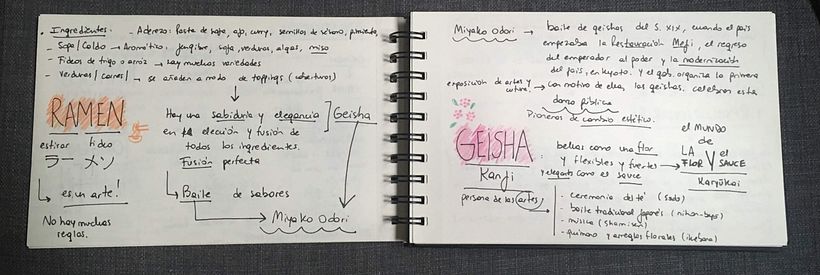 . Ingredientes: - Aderezo: Pasta de soja, ajo, curry, semillas de sésamo, pimienta,
- Sopa/Caldo → Aromático: jengibre, soja, verduras, algas, miso
- Fideos de trigo o arroz → hay muchas variedades
- Verduras/carnes/ → se añaden a modo de toppings (coberturas)
RAMEN
estirar fideo
ラーメン
es un arte!
No hay muchas
reglas.
Hay una sabiduría y elegancia
en la elección y fusión de
todos los ingredientes.
Fusión perfecta
Geisha
Baile de sabores
Miyako Odori
Miyako Odori → baile de geishas del S. XIX, cuando el país
empezaba la Restauración Meiji, el regreso
del emperador al poder y la modernización
del país, en kyoto. Y el gob. organiza la primera
exposición de artes y
cultura, → con motivo de ella, las geishas celebran esta
danza pública
Pioneras de cambio estético.
GEISHA
Kanji
persona de las artes
bellas como una flor
y flexibles y fuertes
y elegante como el sauce
el MUNDO
de
LA FLOR Y el SAUCE
Karyūkai
- ceremonia del té (sado)
- baile tradicional japonés
- música (shamisen)
- quimono y arreglos florales (ikebana)